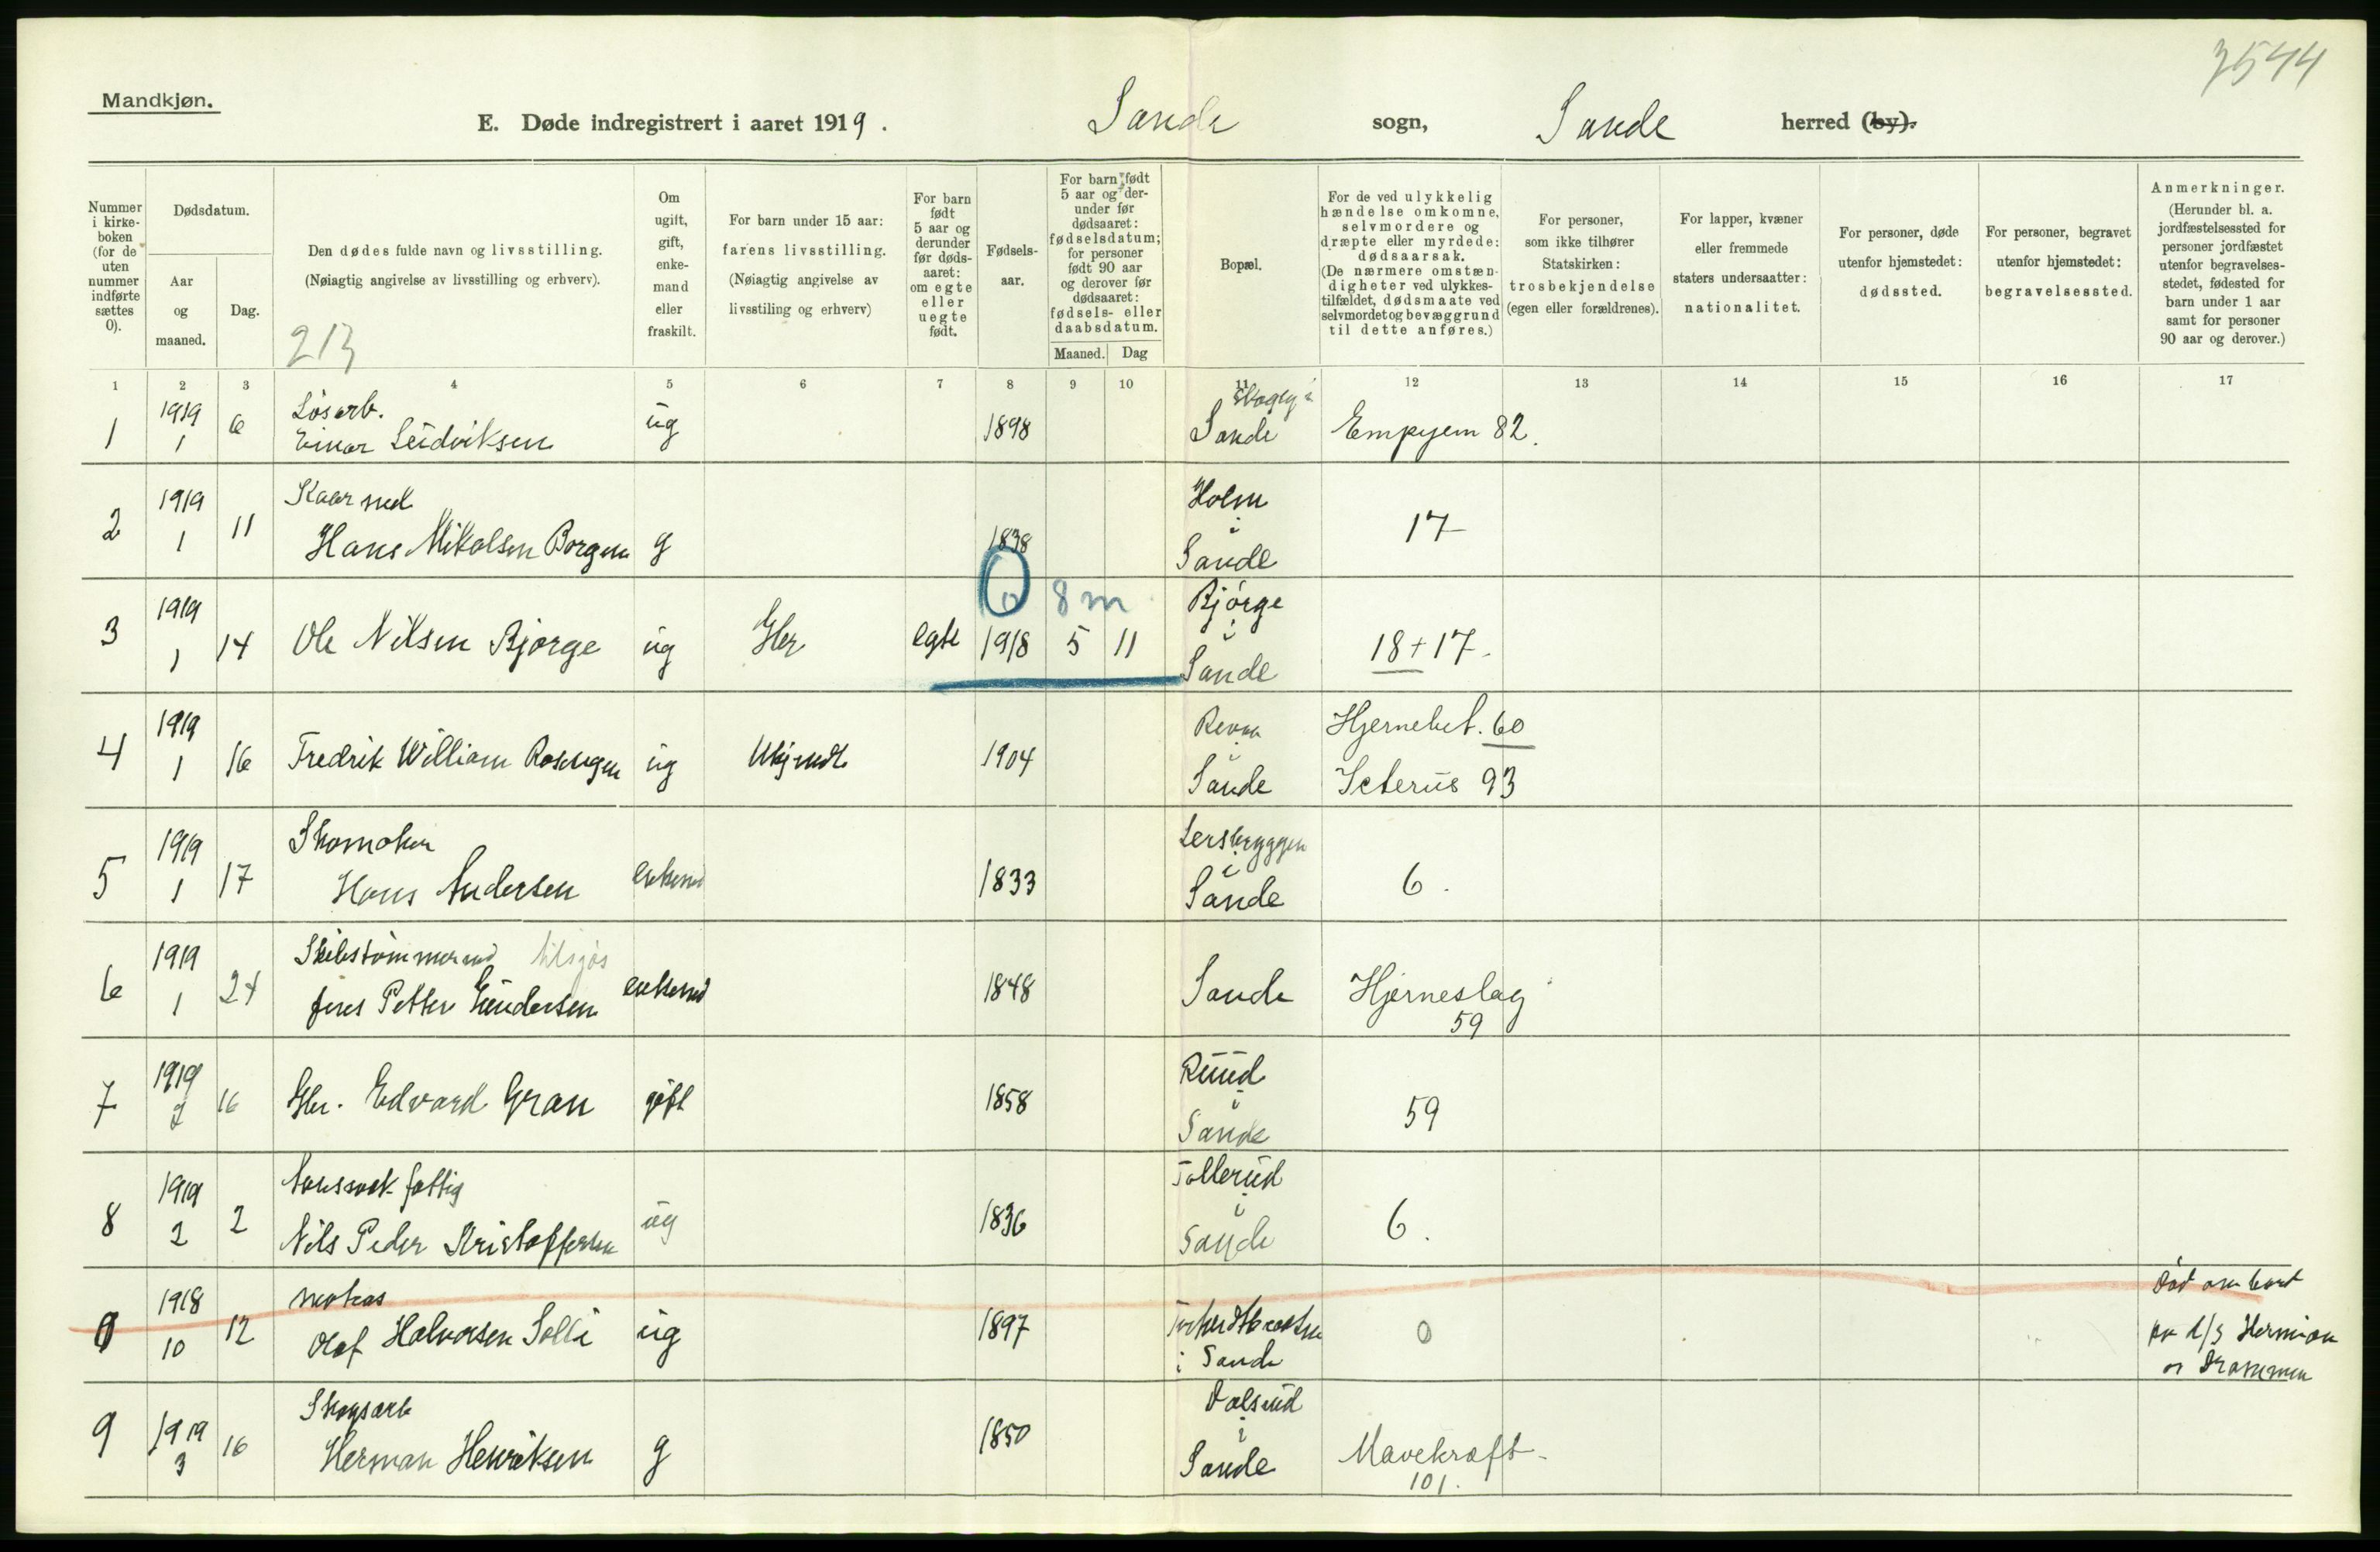 3544
Mandkjøn.
E. Døde indregistrert i aaret 1919. Sande sogn, Sande herred (by).
Nummer i kirke-boken (for de uten nummer indførte sættes 0).
Dødsdatum.
Aar og maaned.
Dag.
Den dødes fulde navn og livsstilling.
(Nøiagtig angivelse av livsstilling og erhverv).
213
Om ugift, gift, enke-mand eller fraskilt.
For barn under 15 aar:
farens livsstilling.
(Nøiagtig angivelse av livsstiling og erhverv)
For barn født 5 aar og derunder før døds-aaret: om egte eller uegte født.
Fødsels-aar.
For barn født 5 aar og der-under før dødsaaret: fødselsdatum; for personer født 90 aar og derover før dødsaaret: fødsels- eller daabsdatum.
Maaned. Dag
Bopæl.
For de ved ulykkelig hændelse omkomne, selvmordere og dræpte eller myrdede: dødsaarsak.
(De nærmere omstæn-digheter ved ulykkes-tilfældet, dødsmaate ved selvmordet og bevæggrund til dette anføres.)
For personer, som ikke tilhører Statskirken: trosbekjendelse (egen eller forældrenes).
For lapper, kvæner eller fremmede staters undersaatter: nationalitet.
For personer, døde utenfor hjemstedet: dødssted.
For personer, begravet utenfor hjemstedet: begravelsessted.
Anmerkninger.
(Herunder bl. a. jordfæstelsessted for personer jordfæstet utenfor begravelses-stedet, fødested for barn under 1 aar samt for personer 90 aar og derover.)
1 2 3 4 5 6 7 8 9 10 11 12 13 14 15 16 17
1 1919 1 6 Løsarb. Einar Ludviksen ug 1898 Sande Empyem 82.
2 1919 1 11 Kaarmd Hans Mikalsen Borgen g 1838 Holm i Sande 17
0 8 m
3 1919 1 14 Ole Nilsen Bjørge ug Gbr egte 1918 5 11 Bjørge i Sande 18+17.
4 1919 1 16 Fredrik William ug Ukjendt 1904 Revaa i Sande Hjernebet. 60 Icterus 93
5 1919 1 17 Skomaker Hans Andersen enkemd 1833 Lersbryggen i Sande 6.
6 1919 1 24 Skibstømmermd Petter Gundersen enkemd 1848 Sande Hjerneslag 59
7 1919 2 16 Gbr. Edvard Gran gift 1858 Ruud i Sande 59
8 1919 2 2 fattig Nils Peder Kristoffersen ug 1836 Tollerud i Sande 6.
0 1918 10 12 Olaf Halvorsen Solli ug 1897 i Sande 0 Død om bord paa d/s Hermion av Drammen
9 1919 3 16 Skogsarb Herman Henriksen g 1850 Dalsrud i Sande Mavekræft 101.